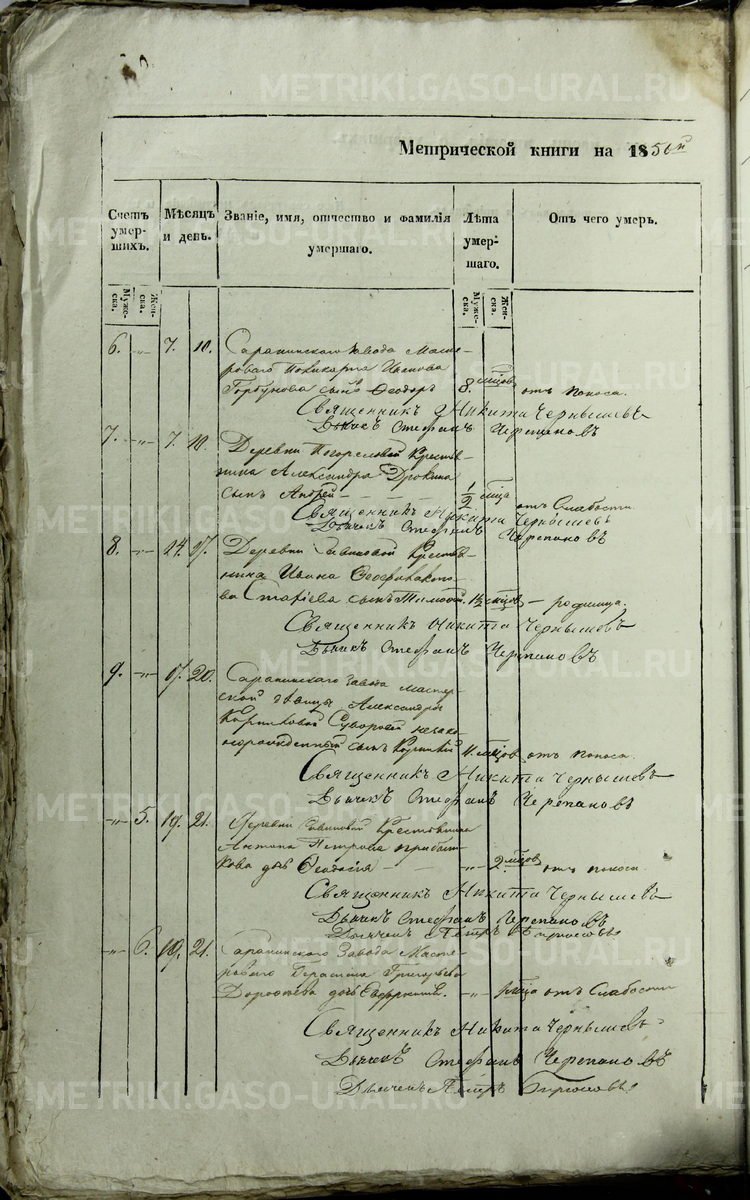 METRIKI.GASO-URAL.RU
Метрической книги на 1850й
Счетъ умершихъ.
Мужеска.
Женска.
Мѣсяцъ и день.
Званіе, имя, отчество и фамилія умершаго.
Лѣта умершаго.
Мужеска.
Женска.
Отъ чего умеръ.
6. -„- 7. 10. Саранинскаго Завода Масте-
роваго Поликарпа Иванова
Горбунова сынъ Ѳеодоръ 8. мцов отъ поноса.
Священникъ Никита Чернышевъ
Дьячекъ Стефанъ Черепановъ
7. -„- 7. 10. Деревни Погореловой Кресть-
янина Александра
сынъ Андрей 1/2 мца отъ Слабости.
Священникъ Никита Чернышевъ
Дьячекъ Стефанъ Черепановъ
8. -„- 14. 17. Деревни Савиновой Кресть-
янина Ивана
сынъ 1 1/2 мцов - родимца.
Священникъ Никита Чернышевъ
Дьячекъ Стефанъ Черепановъ
9. -„- 17. 20. Саранинскаго завода Масте-
ской девицы Александры
незако-
норожденный сынъ 11. мцов отъ поноса.
Священникъ Никита Чернышевъ
Дьячекъ Стефанъ Черепановъ
-„- 5. 19. 21. Деревни Савиновой Крестьянина
Антона Петрова
дочь Ѳеодосія - 2. мцов отъ поноса.
Священникъ Никита Чернышевъ
Дьячекъ Стефанъ Черепановъ
Дьячекъ Петръ
-„- 6. 19. 21. Саранинскаго Завода Масте-
роваго Герасима Григорьева
дочь -„- мца отъ Слабости
Священникъ Никита Чернышевъ
Дьячекъ Стефанъ Черепановъ
Дьячекъ Петръ